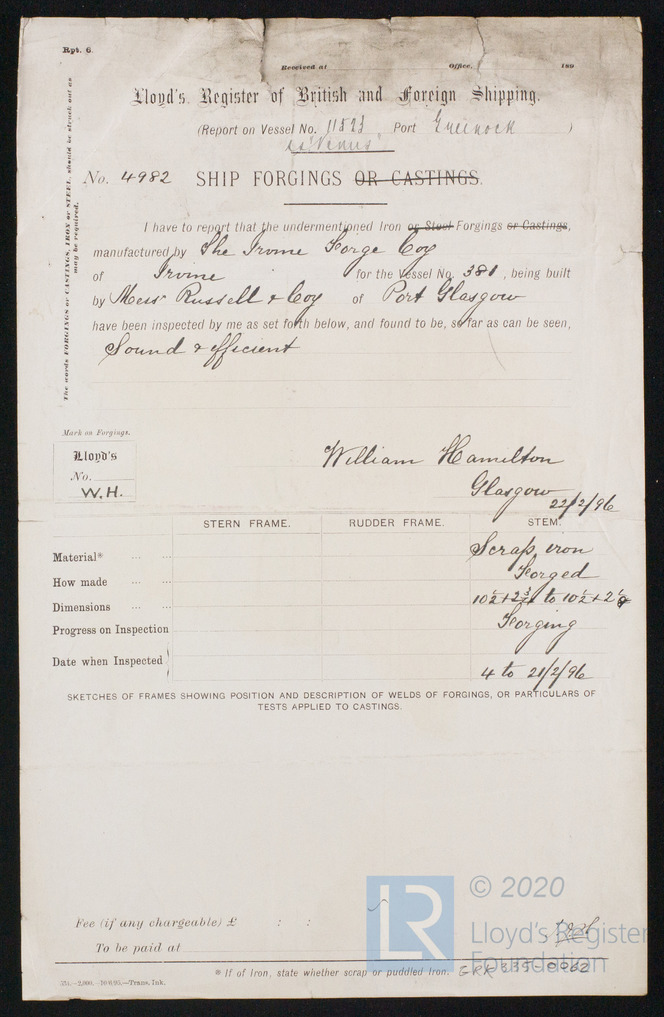 Rpt. 6.
Received at Office, 189
Lloyd's Register of British and Foreign Shipping.
(Report on Vessel No. 11523 Port Greenock )
"Venus"
No. 4982 SHIP FORGINGS OR CASTINGS.
The words FORGINGS or CASTINGS, IRON or STEEL, should be struck out as may be required.
I have to report that the undermentioned Iron or Steel Forgings or Castings,
manufactured by The Irvine Forge Coy
of Irvine for the Vessel No. 381, being built
by Messrs Russell & Coy of Port Glasgow
have been inspected by me as set forth below, and found to be, so far as can be seen,
Sound & efficient
Mark on Forgings.
Lloyd's
No.
W.H.
William Hamilton
Glasgow
22/2/96
STERN FRAME. RUDDER FRAME. STEM.
Material* Scrap iron
How made Forged
Dimensions 10½ + 2¾ to 10½ + 2⅛
Progress on Inspection Forging
Date when Inspected 4 to 21/2/96
SKETCHES OF FRAMES SHOWING POSITION AND DESCRIPTION OF WELDS OF FORGINGS, OR PARTICULARS OF
TESTS APPLIED TO CASTINGS.
Fee (if any chargeable) £ : :
To be paid at
* If of Iron, state whether scrap or puddled Iron.
Trans. Ink.
LR
© 2020
Lloyd's Register
Foundation